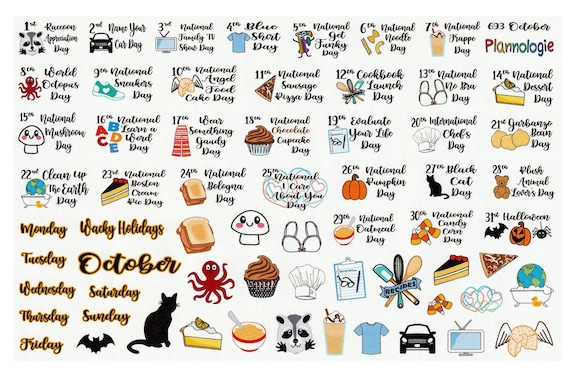 1st Raccoon
Appreciation
Day
2nd Name Your
Car Day
3rd National
Family TV
Show Day
4th Blue
Shirt
Day
5th National
Get
Funky
Day
6th National
Noodle
Day
7th National
Frappe
Day
693 October
Plannologie
8th World
Octopus
Day
9th National
Sneakers
Day
10th National
Angel
Food
Cake Day
11th National
Sausage
Pizza Day
12th Cookbook
Launch
Day
13th National
No Bra
Day
14th National
Dessert
Day
15th National
Mushroom
Day
16th National
Learn a
Word
Day
ABCDE
17th Wear
Something
Gaudy
Day
18th National
Chocolate
Cupcake
Day
19th Evaluate
Your Life
Day
20th International
Chef's
Day
21st Garbanzo
Bean
Day
22nd Clean Up
The Earth
Day
23rd National
Boston
Cream
Pie Day
24th National
Bologna
Day
25th National
I Care
About You
Day
26th National
Pumpkin
Day
27th Black
Cat
Day
28th Plush
Animal
Lover's
Day
Monday
Wacky Holidays
29th National
Oatmeal
Day
30th National
Candy
Corn
Day
31st Halloween
Tuesday
October
RECIPES
Wednesday
Saturday
Thursday
Sunday
Friday